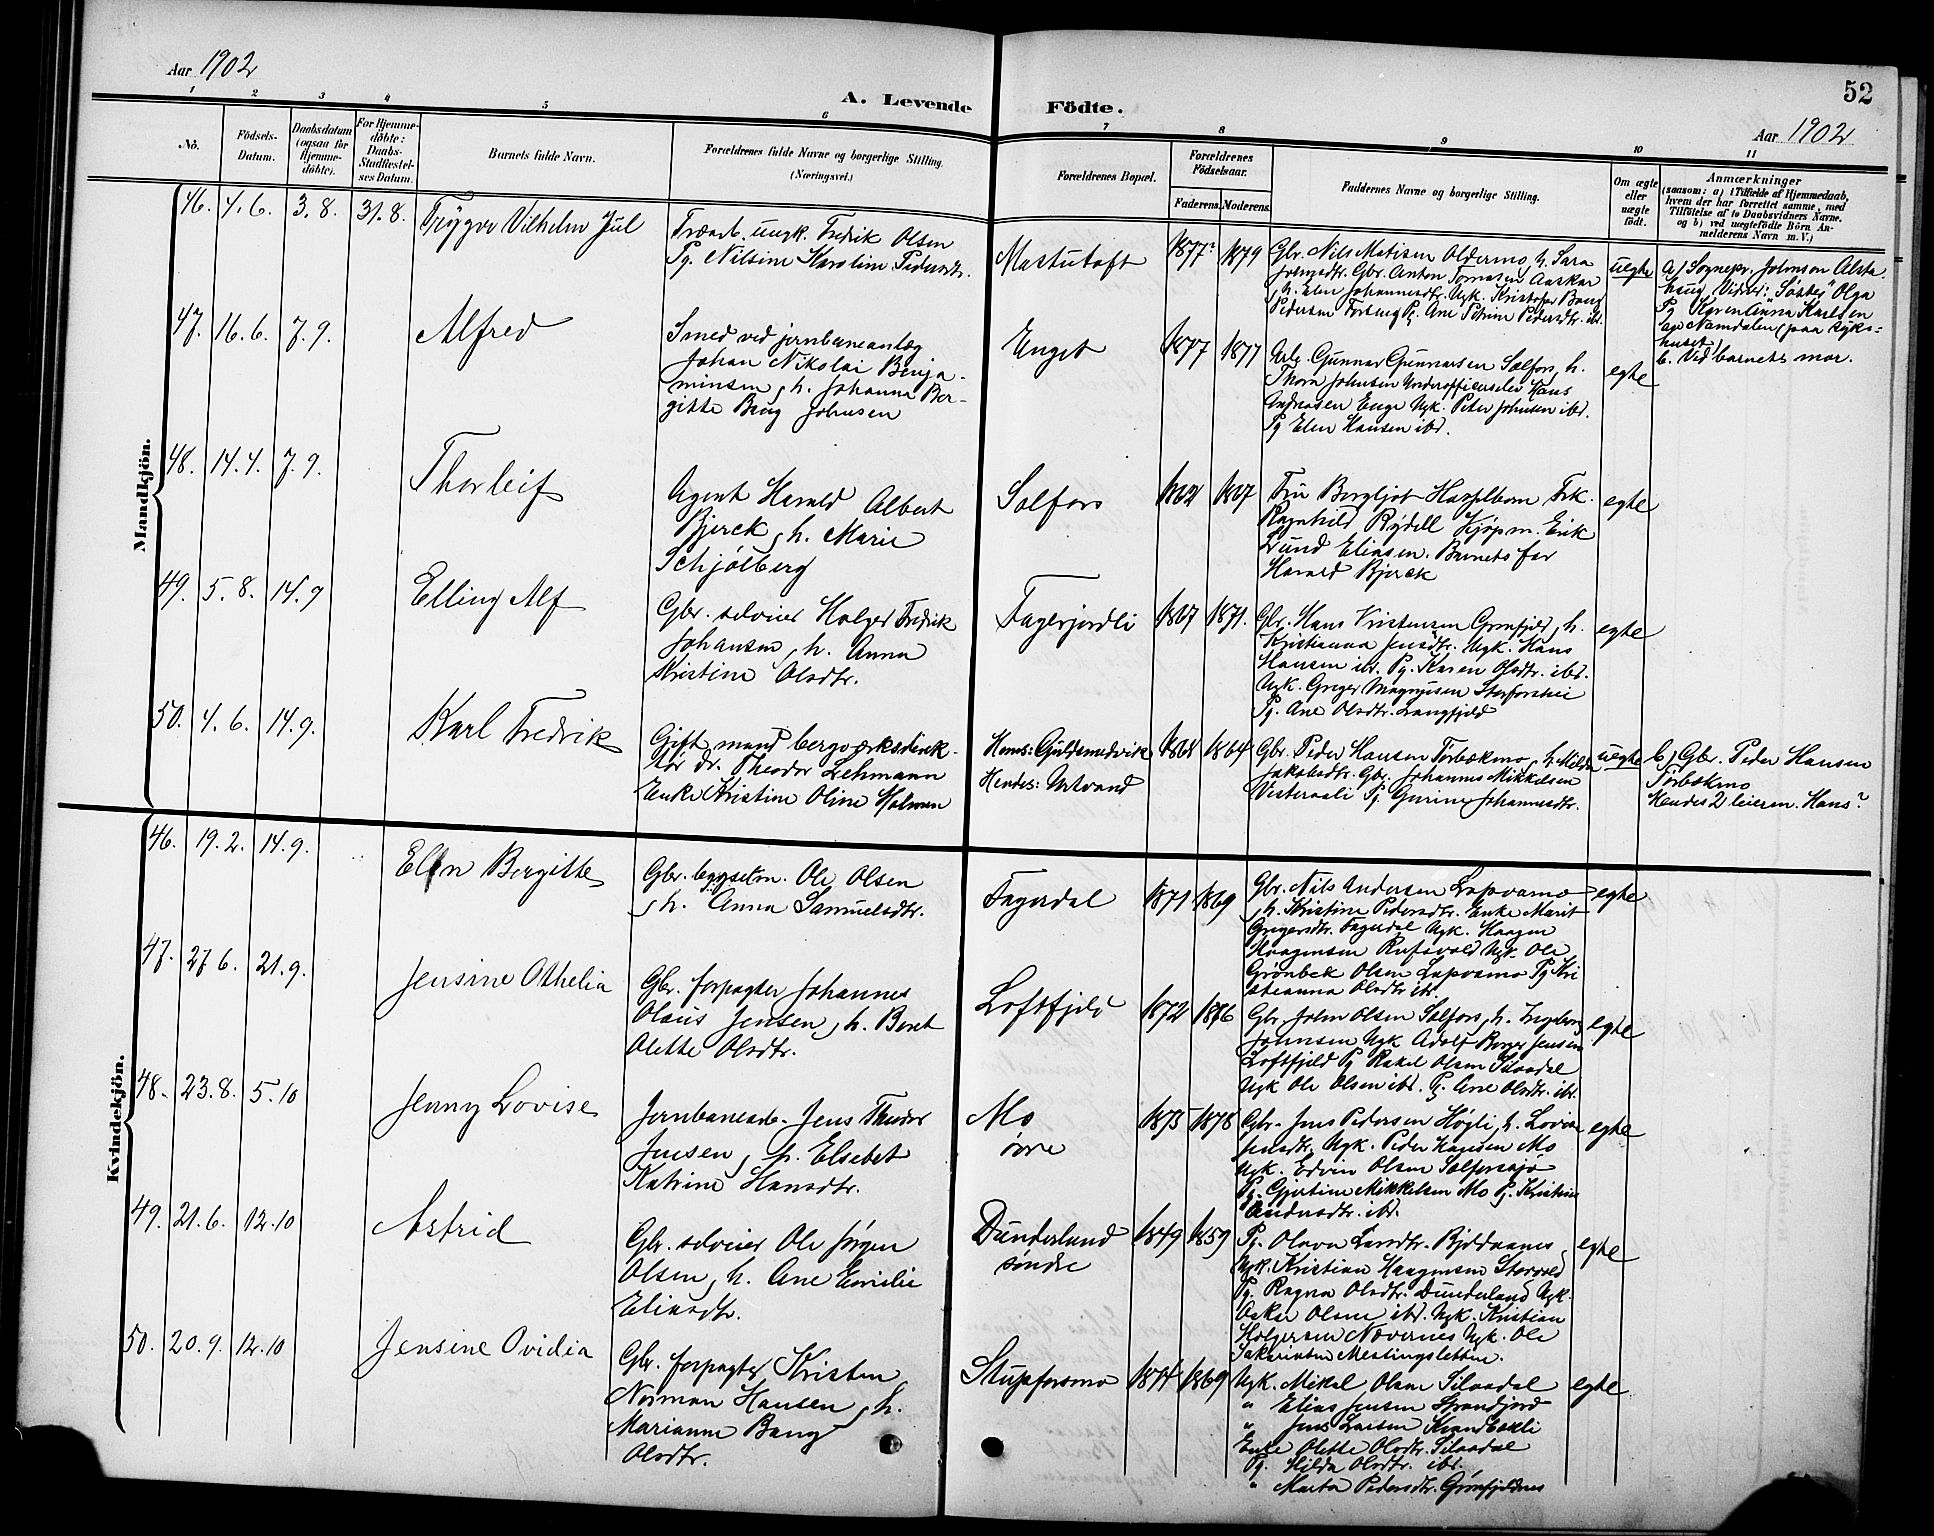 Aar 1902
A. Levende Födte.
52
Aar 1902
1 2 3 4 5 6 7 8 9 10 11
No.
Födsels-Datum.
Daabsdatum (ogsaa for Hjemme-döbte).
For Hjemme-döbte: Daabs-Stadfæstel-ses Datum.
Barnets fulde Navn.
Forældrenes fulde Navne og borgerlige Stilling.
(Næringsvei.)
Forældrenes Bopæl.
Forældrenes Födselsaar.
Faderens.
Moderens.
Faddernes Navne og borgerlige Stilling.
Om ægte eller uægte födt.
Anmærkninger
(saasom: a) i Tilfælde af Hjemmedaab,
hvem der har forrettet samme, med
Tilföielse af to Daabsvidners Navne.
og b) ved uægtefödte Börn An-
melderens Navn m. V.)
Mandkjön.
46. 4.6. 3.8. 31.8. Trygve Vilhelm Jul
Træarb. ungk. Fredrik Olsen
Pg. Nilsine Karoline Pedersdtr.
Mastutoft 1877? 1879
Gbr. Nils Matisen Oldermo, h. Sara
Jensdtr. Gbr. Anton Tomasen Aaskar
, h. Elen Johannesdtr. Ugk. Kristofer Bang
Pedersen Forsmo Pg. Ane Petrine Pedersdtr. ibd.
uegte
a) Sognepr. Johnson Alsta-
haug Vidner: "Søster" Olga
Pg Karen Anna Karlsen
av Namdalen (paa syke-
huset)
b. Ved barnets mor.
47. 16.6. 7.9. Alfred
Smed ved jernbaneanlæg
Johan Nikolai Benja-
minsen, h. Johanna Ber-
gitte Bang Johnsen
Enget 1877 1877
Arb. Gunnar Gunnarsen Selfors, h.
Thora Johnsen Underofficerselev Hans
Andreasen Enge Ugk. Peter Johnsen ibd.
Pg Elen Hansen ibd.
egte
48. 14.4. 7.9. Thorleif
Agent Harald Albert
Bjerck, h. Marie
Schjølberg
Selfors
Fru Bergljot Hasselbom Frk.
Ragnhild Rydell Kjøpm. Erik
Lund Eliasen. Barnets far
Harald Bjerck
egte
49. 5.8. 14.9 Elling Alf
Gbr. selveier Holger Fredrik
Johansen, h. Anna
Kristine Olsdtr.
Fagerjordli 1867 1871.
Gbr. Hans Kristensen Grønfjeld, h.
Kristianna Jensdtr. Ugk. Hans
Hansen ibd. Pg. Karen Olsdtr. ibd.
Ugk. Greger Magnusen Storforshei
Pg. Ane Olsdtr. Langfjeld
egte
50. 4.6. 14.9. Karl Fredrik
Gift mand bergværksdirek-
tør dr. Theodor Lehmann
Enke Kristine Oline Holmen
Hans: Guldsmedvik
Hendes: Utvand 1868 1864
Gbr. Peder Hansen Tørbækmo, h. Milda
Jakobsdtr. Gbr. Johannes Mikkelsen
Vesteraali Pg. Gurine Johannesdtr.
uegte
b) Gbr. Peder Hansen
Tørbækmo
Hendes 2 leierm. Hans?
Kvindekjön.
46. 19.2. 14.9. Elen Bergitte
Gbr. bygselm. Ole Olsen
, h. Anna Samuelsdtr.
Fagerdal 1871 1869
Gbr. Nils Andersen Lapvamo
, h. Kristine Pedersdtr. Enke Marit
Gregersdtr. Fagerdal Ugk. Haagen
Haagensen Rufsvold Ugk. Ole
Grønbek Olsen Lapvamo Pg Kri
stianna Olsdtr ibd.
egte
47. 27.6. 21.9. Jensine Othelia
Gbr. forpagter Johannes
Olaus Jensen, h. Beret
Olette Olsdtr.
Loftfjeld 1872 1876
Gbr. John Olsen Selfors, h. Ingeborg
Johnsen Ugk Adolf Borger Jensen
Loftfjeld Pg Rakel Olsen Silaadal
Ugk Ole Olsen ibd. Pg. Ane Olsdtr. ibd.
egte
48. 23.8. 5.10 Jenny Lovise
Jernbanearb. Jens Theodor
Jensen, h. Elsebet
Katrine Hansdtr.
Mo
øvre 1875 1878
Gbr. Jens Pedersen Høgli, h. Lovise
Jensdtr. Ugk. Peder Hansen Mo
Ugk. Edvin Olsen Selforssjø
Pg. Gjertine Mikkelsen Mo Pg. Kristine
Andersdtr. ibd.
egte
49. 21.6. 12.10 Astrid
Gbr. selveier Ole Jørgen
Olsen, h. Ane Emilie
Eliasdtr.
Dunderland
søndre 1849 1859
Pg. Olava Larsdtr. Bjeldaanes
Ugk. Kristian Haagensen Storvold
Pg. Ragna Olsdtr. Dunderland Ugk.
Oskar Olsen ibd. Ugk. Kristian
Holgersen Nævernes Ugk. Ole
Sakariasen Messingsletten.
egte
50. 20.9. 12.10 Jensine Ovidia
Gbr. forpagter Kristen
Norman Hansen, h.
Marianne Bang
Olsdtr.
Stupforsmo 1869
Ugk. Mikal Olsen Silaadal
" Elias Jensen Strandjord
" Jens Larsen
Enke Olette Olsdtr. Silaadal
Pg. Hilda Olsdtr. ibd.
" Marta Pedersdtr. Grønfjeldnes
egte